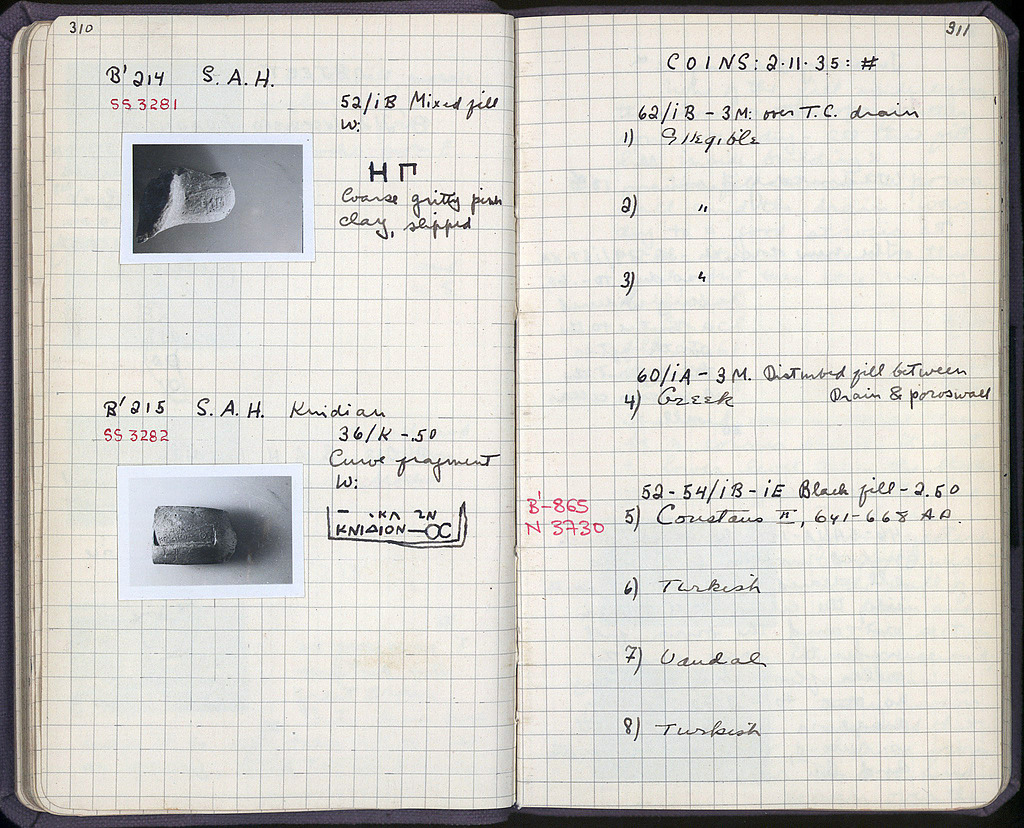 310
B' 214 S. A. H.
SS 3281
52/ iB Mixed fill
W:
Η Π
Coarse gritty pink
clay, slipped
B' 215 S. A. H. Knidian
SS 3282
36/K - .50
Curve fragment
W:
ΚΝΙΔΙΟΝ
311
COINS: 2·11·35: #
62/ iB - 3M: over T.C. drain
1) Illegible
2) "
3) "
60/ iA - 3 M. Disturbed fill between
Drain & poros wall
4) Greek
52-54/ iB - iE Black fill - 2.50
B'-865
N 3730
5) Constans II, 641-668 A.D.
6) Turkish
7) Vandal
8) Turkish